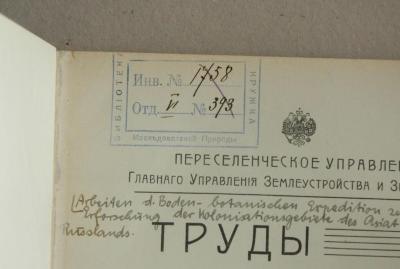 БИБЛІОТЕКА
КРУЖКА
Инв. № 1758
Отд. VI № 393
Изслѣдователей Природы
ПЕРЕСЕЛЕНЧЕСКОЕ УПРАВЛЕ
ГЛАВНАГО УПРАВЛЕНІЯ ЗЕМЛЕУСТРОЙСТВА И З
[Arbeiten d. Boden-botanischen Expedition z
Erforschung der Kolonisationsgebiete des Asiat
Russlands.
ТРУДЫ